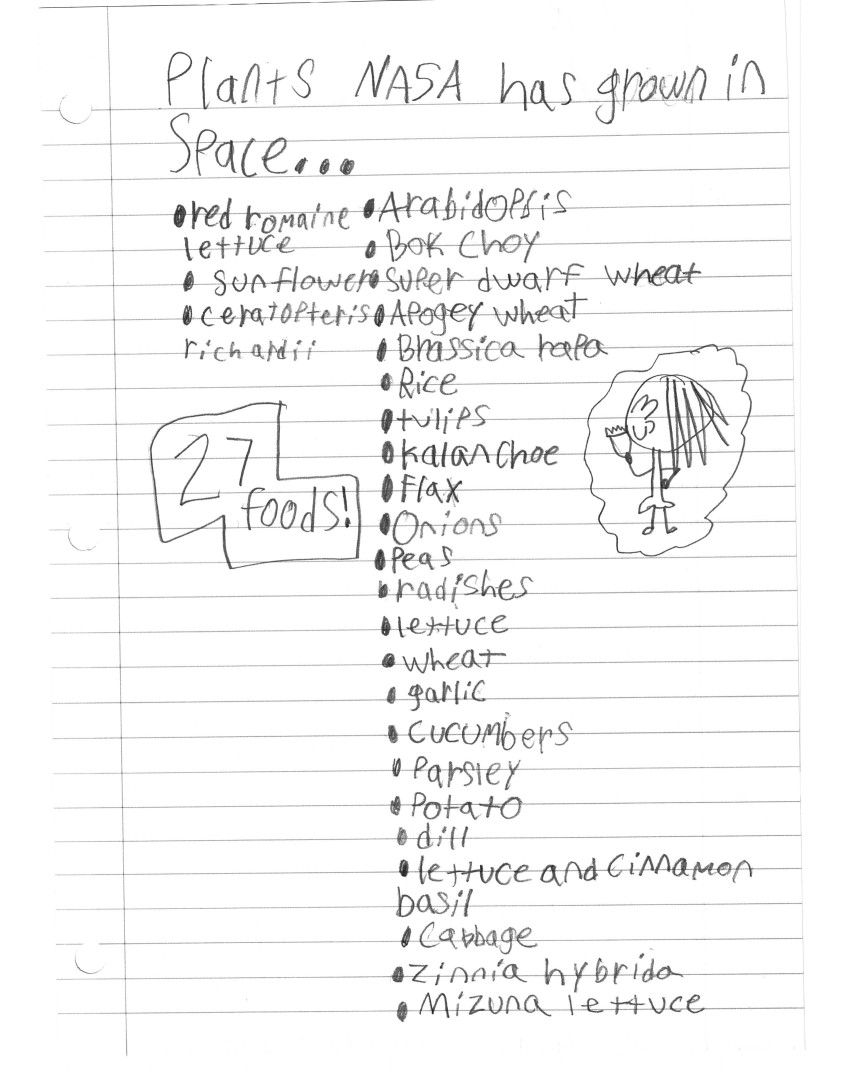 Plants NASA has grown in
Space...
•red romaine
lettuce
• sunflower
•ceratopteris
richardii
27
foods!
•Arabidopsis
•Bok Choy
•super dwarf wheat
•Apogey wheat
•Brassica rapa
•Rice
•tulips
•kalanchoe
•Flax
•Onions
•Peas
•radishes
•lettuce
•wheat
•garlic
•cucumbers
•Parsley
•Potato
•dill
•lettuce and Cinnamon
basil
•Cabbage
•Zinnia hybrida
•Mizuna lettuce